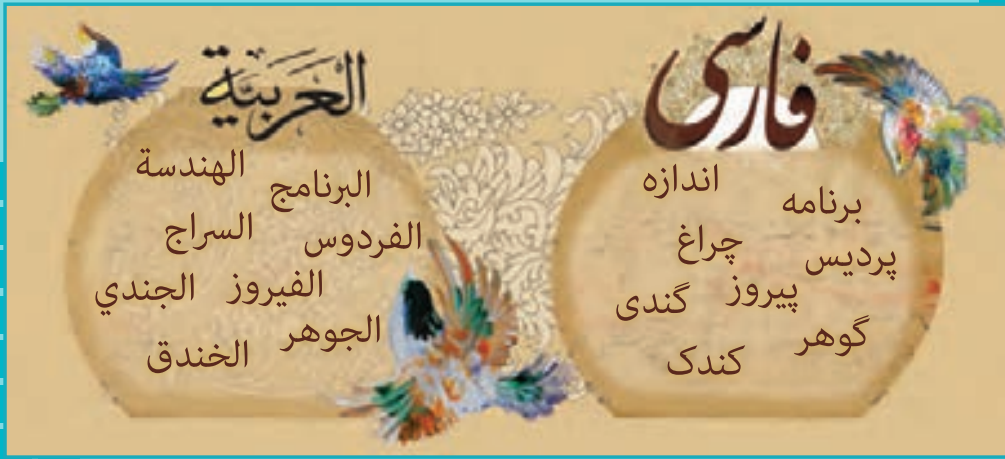 فارسی
اندازه
برنامه
چراغ
پردیس
پیروز
گندی
گوهر
کندک
العَرَبيَّة
الهندسة
البرنامج
السراج
الفردوس
الفيروز
الجندي
الجوهر
الخندق